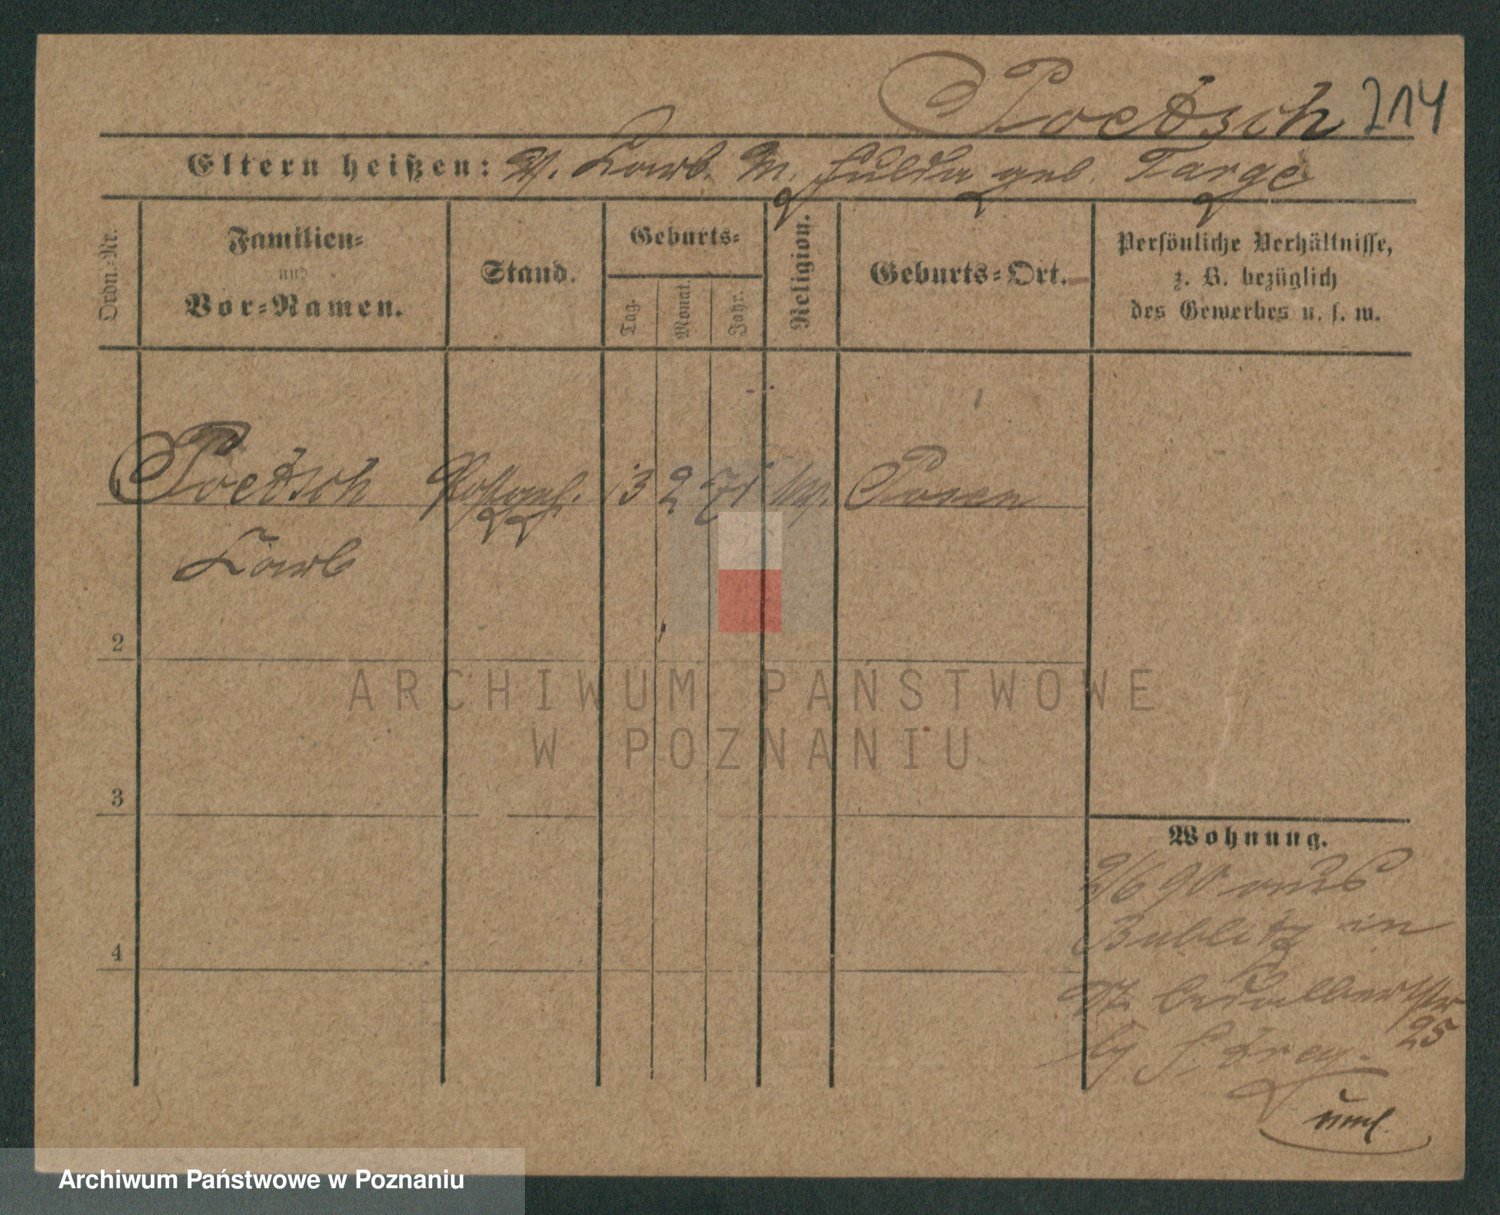 Poetsch 214
Eltern heißen: V. Karl. M. Hulda geb. Targe
Ordn.-Nr.
Familien-
und
Vor-Namen.
Stand.
Geburts-
Tag.
Monat.
Jahr.
Religion.
Geburts-Ort.
Persönliche Verhältnisse,
z. B. bezüglich
des Gewerbes u. s. w.
Poetsch 3 2 71 Posen
Karl
2
3
4
Wohnung.
2/6 90 aus
Bublitz in
25
ARCHIWUM PAŃSTWOWE
W POZNANIU
Archiwum Państwowe w Poznaniu